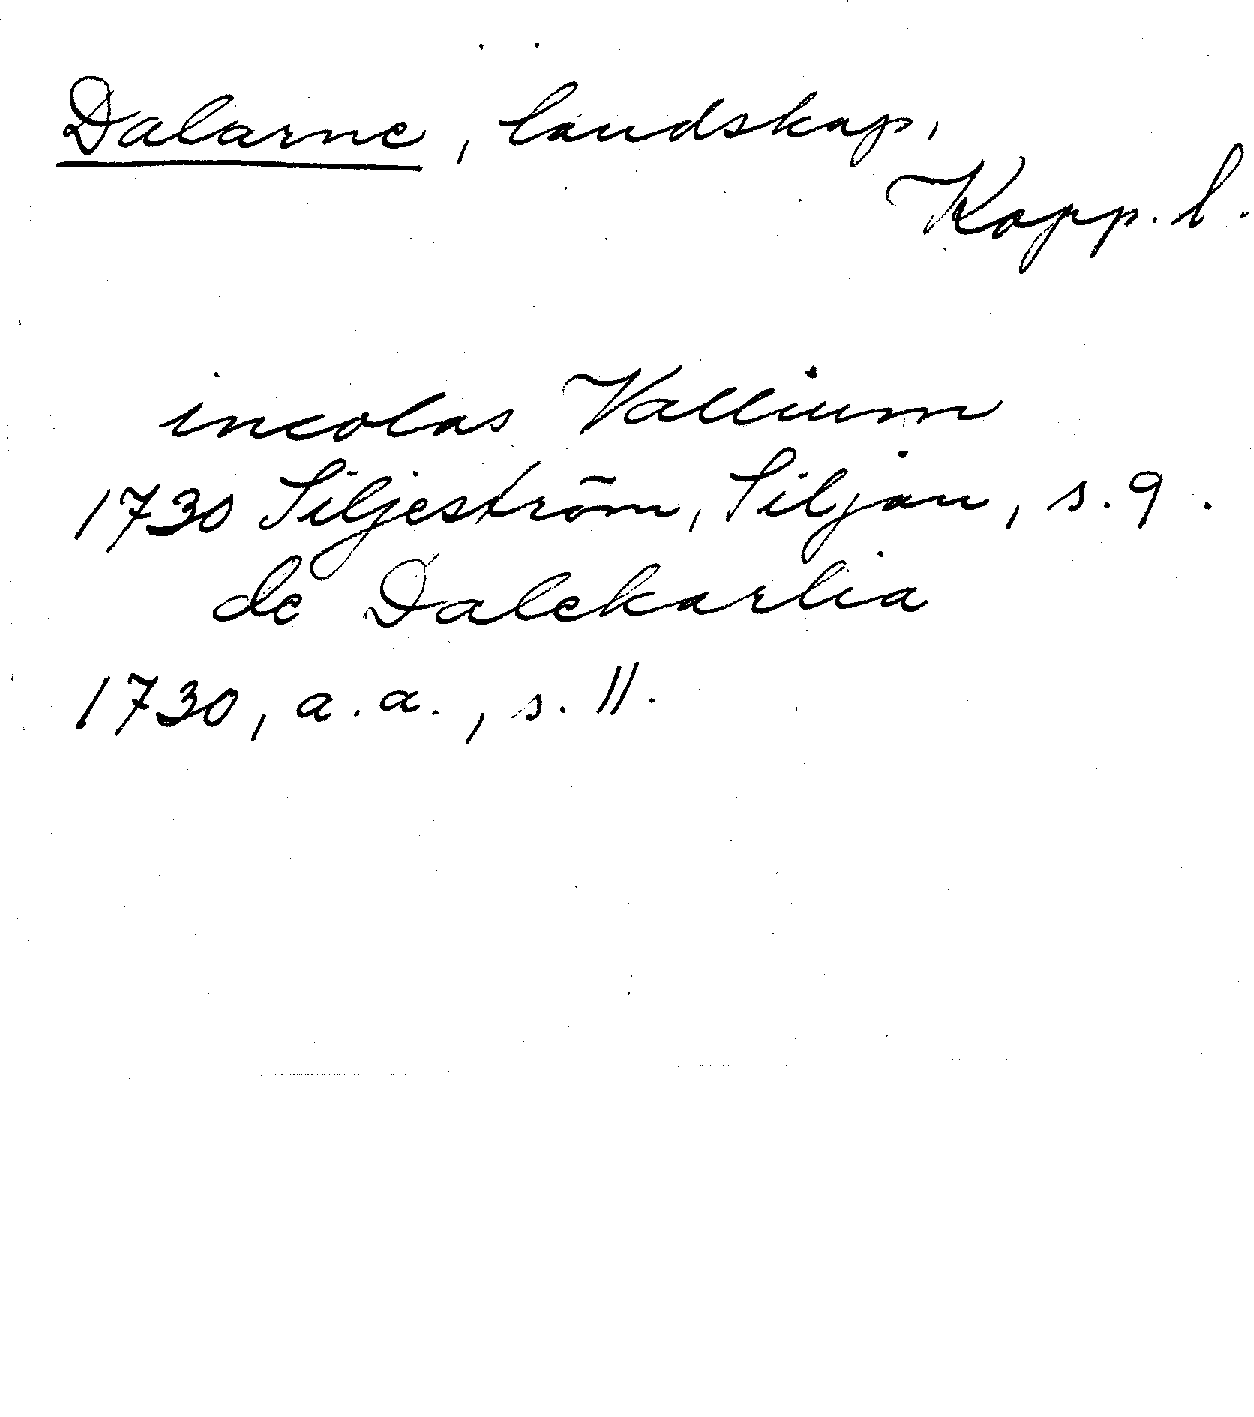 Dalarne, landskap,
Kopp. l.
incolas Vallium
1730 Siljeström, Siljan, s. 9.
de Dalekarlia
1730, a.a., s. 11.